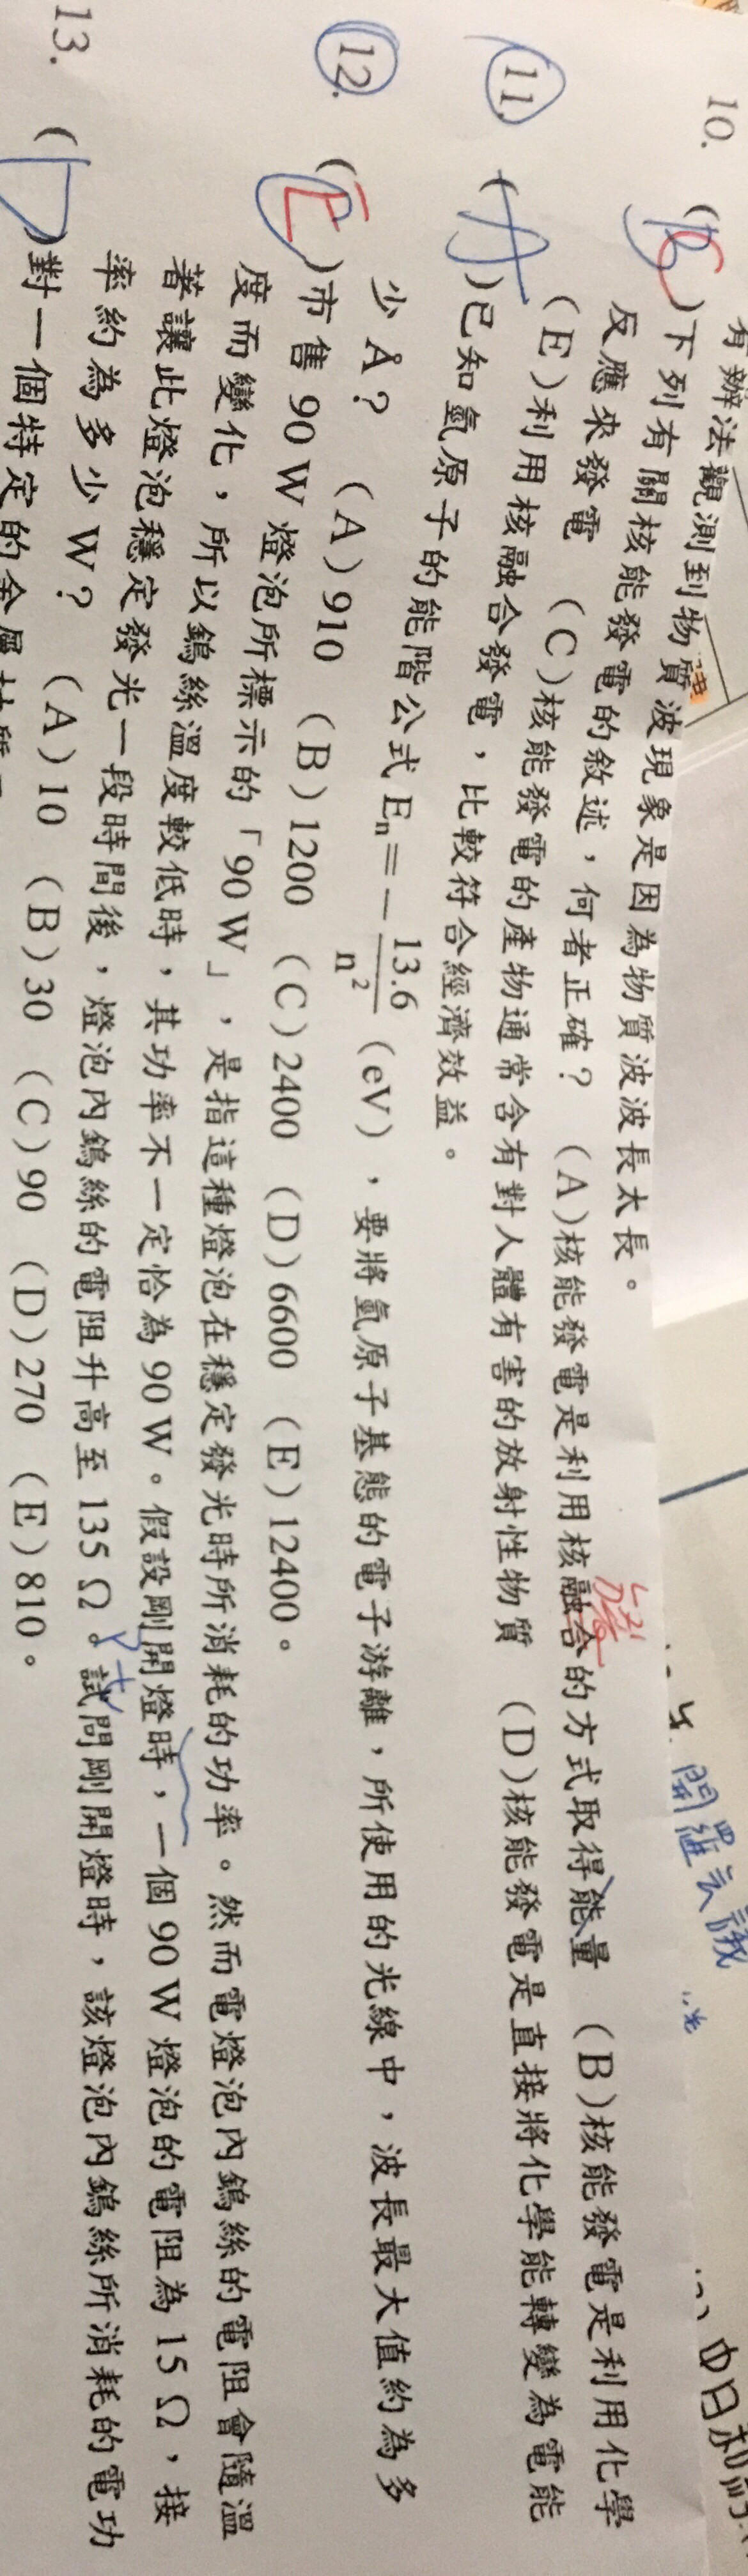 有辦法觀測到物質波現象是因為物質波波長太長。
10. ( C )下列有關核能發電的敘述,何者正確? (A)核能發電是利用核融合的方式取得能量 (B)核能發電是利用化學
反應來發電 (C)核能發電的產物通常含有對人體有害的放射性物質 (D)核能發電是直接將化學能轉變為電能
(E)利用核融合發電,比較符合經濟效益。
11. ( A )已知氫原子的能階公式 En=-13.6/n² (eV),要將氫原子基態的電子游離,所使用的光線中,波長最大值約為多
少 Å? (A)910 (B)1200 (C)2400 (D)6600 (E)12400。
12. ( E )市售 90 W 燈泡所標示的「90 W」,是指這種燈泡在穩定發光時所消耗的功率。然而電燈泡內鎢絲的電阻會隨溫
度而變化,所以鎢絲溫度較低時,其功率不一定恰為 90 W。假設剛開燈時,一個 90 W 燈泡的電阻為 15 Ω,接
著讓此燈泡穩定發光一段時間後,燈泡內鎢絲的電阻升高至 135 Ω。試問剛開燈時,該燈泡內鎢絲所消耗的電功
率約為多少 W? (A)10 (B)30 (C)90 (D)270 (E)810。
13. ( D )對一個特定的金屬材質